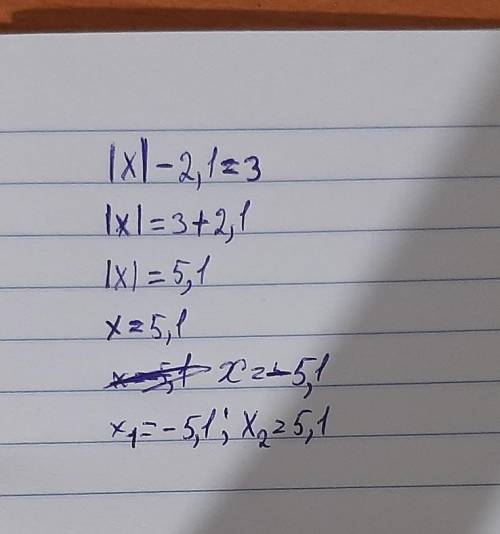 |x| - 2,1 = 3
|x| = 3 + 2,1
|x| = 5,1
x = 5,1
x = -5,1
x₁ = -5,1; x₂ = 5,1